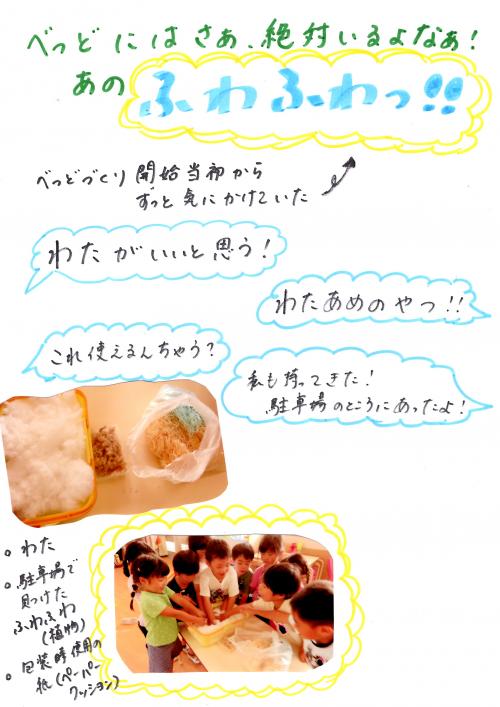 べっどにはさぁ、絶対いるよなぁ!
あの ふわふわっ!!
べっどづくり開始当初から
ずっと気にかけていた
わたがいいと思う!
わたあめのやつ!!
これ使えるんちゃう?
私も持ってきた!
駐車場のところにあったよ!
○ わた
○ 駐車場で
見つけた
ふわふわ
(植物)
○ 包装時使用の
紙(ペーパー
クッション)